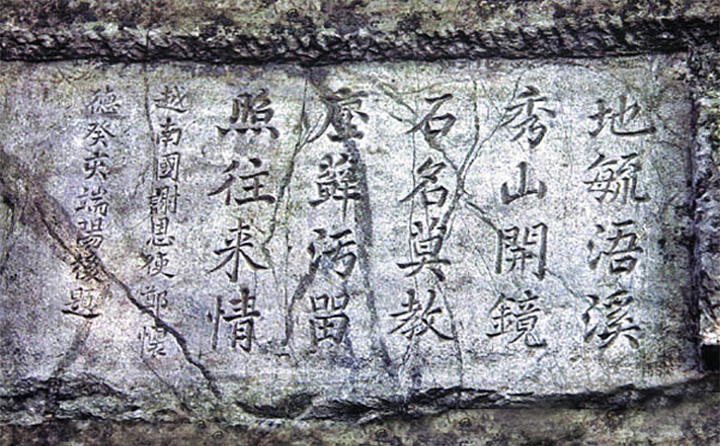 地毓浯溪
秀山開鏡
石名莫教
塵蘚污留
照往来情
越南國謝恩使鄭懷
德癸亥端陽後題